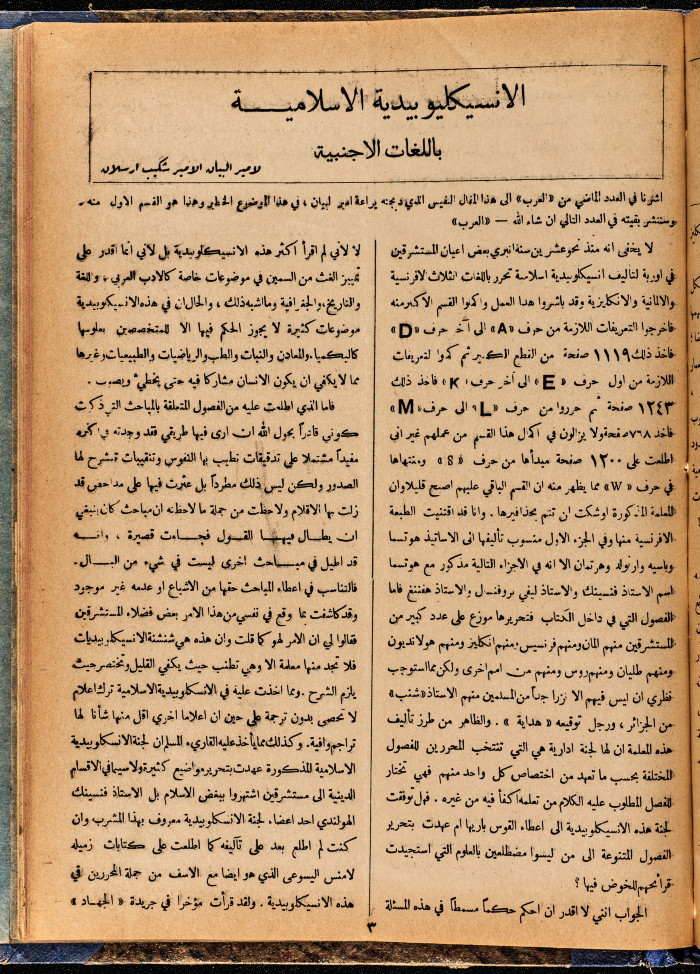 الانسيكليوبيدية الاسلاميـــــة
باللغات الاجنبية
لامير البيان الامير شكيب ارسلان
اشرنا في العدد الماضي من «العرب» الى هذا المقال النفيس الذي دبجته يراعة امير البيان ، في هذا الموضوع الخطير وهذا هو القسم الاول منه ـ
وسننشر بقيته في العدد التالي ان شاء الله — «العرب»
لا يخفى انه منذ نحو عشرين سنة انبرى بعض اعيان المستشرقين
في اوربة لتاليف انسيكلوبيدية اسلامية تحرر باللغات الثلاث لافرنسية
والالمانية والانكليزية وقد باشروا هذا العمل واكملوا القسم الاكبر منه
فاخرجوا التعريفات اللازمة من حرف «A» الى آخر حرف «D»
فاخذ ذلك ١١١٩ صفحة من القطع الكبير ثم كملوا لتعريفات
اللازمة من اول حرف «E» الى آخر حرف «K» فاخذ ذلك
١٢٤٣ صفحة ثم حرروا من حرف «L» الى حرف «M»
فاخذ ٧٦٨ صفحة ولا يزالون في اكمال هذا القسم من عملهم غير اني
اطلعت على ١٢٠٠ صفحة مبدأها من حرف «S» ومنتهاها
في حرف «W» مما يظهر منه ان القسم الباقي عليهم اصبح قليلا وان
المعلمة المذكورة اوشكت ان تتم بحذافيرها . وانا قد اقتنيت الطبعة
الافرنسية منها وفي الجزء الاول منسوب تأليفها الى الاساتيذ هوتسما
وباسيه وارنولد وهرتمان الا انه في الاجزاء التالية مذكور مع هوتسما
اسم الاستاذ فنسينك والاستاذ ليفي بروفنسال والاستاذ هفننغ فاما
الفصول التي في داخل الكتاب فتحريرها موزع على عدد كبير من
المستشرقين منهم المان ومنهم فرنسيس ومنهم انكليز ومنهم هولانديون
ومنهم طليان ومنهم روس ومنهم من امم اخرى ولكن مما استوجب
نظري ان ليس فيهم الا نزرا جدا من المسلمين منهم الاستاذ «شنب»
من الجزائر ، ورجل توقيعه « هداية » . والظاهر من طرز تأليف
هذه المعلمة ان لها لجنة ادارية هي التي تنتخب المحررين للفصول
المختلفة بحسب ما تعهد من اختصاص كل واحد منهم فهي تختار
للفصل المطلوب عليه الكلام من تعلمه اكفأ فيه من غيره . فهل توفقت
لجنة هذه الانسيكلوبيدية الى اعطاء القوس باريها ام عهدت بتحرير
الفصول المتنوعة الى من ليسوا مضطلعين بالعلوم التي استجيدت
قرائحهم للخوض فيها ؟
الجواب انني لا اقدر ان احكم حكماً مسمطاً في هذه المسئلة
لا لأني لم اقرأ اكثر هذه الانسيكلوبيدية بل لأني انما اقدر على
تمييز الغث من السمين في موضوعات خاصة كالادب العربي ، واللغة
والتاريخ، والجغرافية وما اشبه ذلك ، والحال ان في هذه الانسيكلوبيدية
موضوعات كثيرة لا يجوز الحكم فيها الا للمتخصصين بعلومها
كالكيمياء والمعادن والنبات والطب والرياضيات والطبيعيات وغيرها
مما لا يكفي ان يكون الانسان مشاركا فيه حتى يخطيء ويصوب .
فاما الذي اطلعت عليه من الفصول المتعلقة بالمباحث التي ذكرت
كوني قادراً بحول الله ان ارى فيها طريقي فقد وجدته في اكثره
مفيداً مشتملا على تدقيقات تطيب بها النفوس وتنقيبات تنشرح لها
الصدور ولكن ليس ذلك مطرداً بل عثرت فيها على مداحض قد
زلت بها الاقلام ولاحظت من جملة ما لاحظته ان مباحث كان ينبغي
ان يطال فيهـا القـول فجـاءت قصيرة ، وانـه
قد اطيل في مبـاحث اخرى ليست في شيء من البـال .
فالتناسب في اعطاء المباحث حقها من الاشباع او عدمه غير موجود
وقد كاشفت بما وقع في نفسي من هذا الامر بعض فضلاء المستشرقين
فقالوا لي ان الامر لهو كما قلت وان هذه هي شنشنة الانسيكلوبيديات
فلا نجد منها معلمة الا وهي تطنب حيث يكفي القليل وتختصر حيث
يلزم الشرح . ومما اخذت عليه في الانسكلوبيدية الاسلامية ترك اعلام
لا تحصى بدون ترجمة على حين ان اعلاما اخرى اقل منها شأنا لها
تراجم وافية . وكذلك مما يأخذ عليه القاريء المسلم ان لجنة الانسكلوبيدية
الاسلامية المذكورة عهدت بتحرير مواضيع كثيرة ولا سيما في الاقسام
الدينية الى مستشرقين اشتهروا ببغض الاسلام بل الاستاذ فنسينك
الهولندي احد اعضاء لجنة الانسكلوبيدية معروف بهذا المشرب وان
كنت لم اطلع بعد على تآليفه كما اطلعت على كتابات زميله
لامنس اليسوعى الذي هو ايضا مع الاسف من جملة المحررين في
هذه الانسيكلوبيدية . ولقد قرأت مؤخرا في جريدة « الجهــاد »
٣